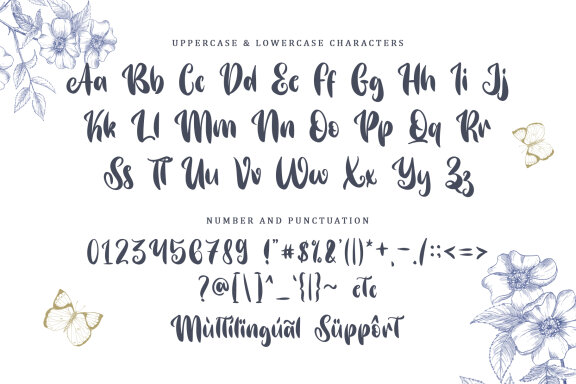 UPPERCASE & LOWERCASE CHARACTERS
Aa Bb Cc Dd Ee Ff Gg Hh Ii Jj
Kk Ll Mm Nn Oo Pp Qq Rr
Ss Tt Uu Vv Ww Xx Yy Zz
NUMBER AND PUNCTUATION
0123456789 !"#$%&'()*+,-./:;<=>
?@[\]^_`{|}~ etc
Mùltilingúãl Süppôrt